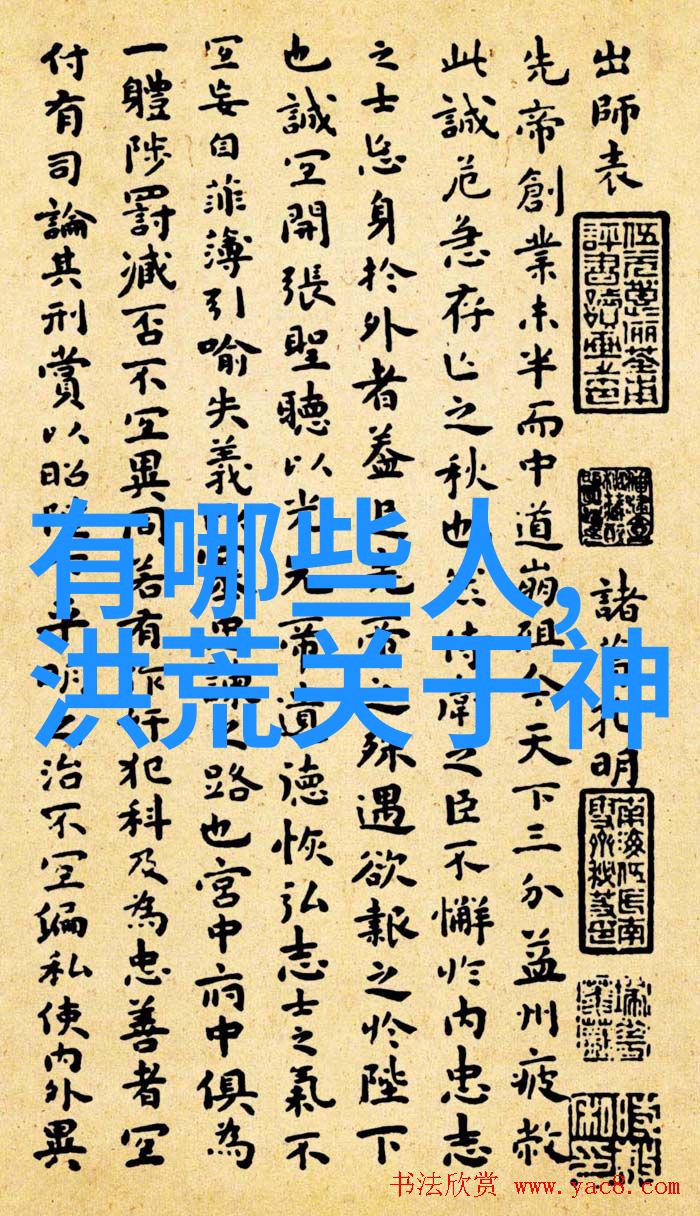 出師表
諸葛孔明
先帝創業未半而中道崩殂今天下三分益州疲敝
此誠危急存亡之秋也然侍衛之臣不懈於内忠志
之士忘身於外者蓋追先帝之殊遇欲報之於陛下
也誠宜開張聖聽以光先帝遺德恢弘志士之氣不
宜妄自菲薄引喻失義以塞忠諫之路也宮中府中俱為
一體陟罰臧否不宜異同若有作奸犯科及為忠善者宜
付有司論其刑賞以昭陛下平明之治不宜偏私使内外異
有哪些人,
洪荒关于神
书法欣赏 www.yac8.com